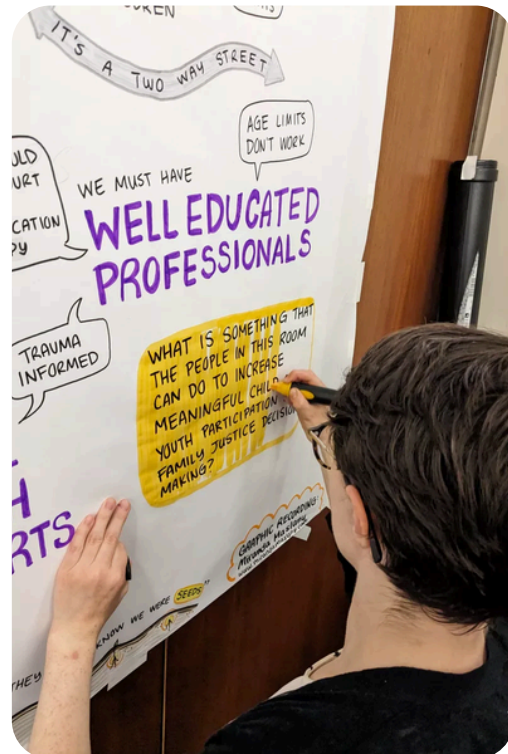 IT'S A TWO WAY STREET
AGE LIMITS
DON'T WORK
WE MUST HAVE
WELL EDUCATED
PROFESSIONALS
TRAUMA
INFORMED
WHAT IS SOMETHING THAT
THE PEOPLE IN THIS ROOM
CAN DO TO INCREASE
MEANINGFUL CHILD
YOUTH PARTICIPATION
FAMILY JUSTICE DECISION
MAKING?
GRAPHIC RECORDING:
KNOW WE WERE SEEDS"
THEY